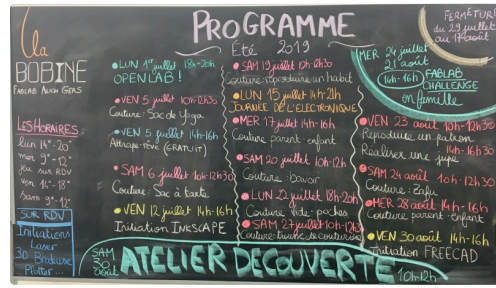 PROGRAMME
Été 2019
la
BOBINE
FABLAB AUCH GERS
LES HORAIRES:
lun 14h-20h
mer 9h-12h
jeu sur RDV
ven 14h-18h
sam 9h-12h
SUR RDV
Initiations
Laser
3D Brodeuse
Plotter...
LUN 1er juillet 18h-20h
OPENLAB!
VEN 5 juillet 10h-12h30
Couture: Sac de Yoga
VEN 5 juillet 14h-16h
Attrape-rêve (GRATUIT)
SAM 6 juillet 10h-12h30
Couture: Sac à tarte
VEN 12 juillet 14h-16h
Initiation INKSCAPE
SAM juillet 10h-12h30
Couture: reproduire un habit
LUN 15 juillet 14h-21h
JOURNÉE DE L'ELECTRONIQUE
MER 17 juillet 14h-16h
Couture parent-enfant
SAM 20 juillet 10h-12h
Couture: bavoir
LUN 22 juillet 18h-20h
Couture vide-poches
SAM 27 juillet 10h-12h30
Couture:
FERMETURE
du 29 juillet
au 17 août
MER 24 juillet
21 août
14h-16h
FABLAB
CHALLENGE
en famille
VEN 23 août 10h-12h30
Reproduire un patron
14h-16h30
Réaliser une jupe
SAM 24 août 10h-12h30
Couture: Zafu
MER 28 août 14h-16h
Couture parent-Enfant
VEN 30 août 14h-16h
Initiation FREECAD
SAM
août
ATELIER DECOUVERTE
10h-12h